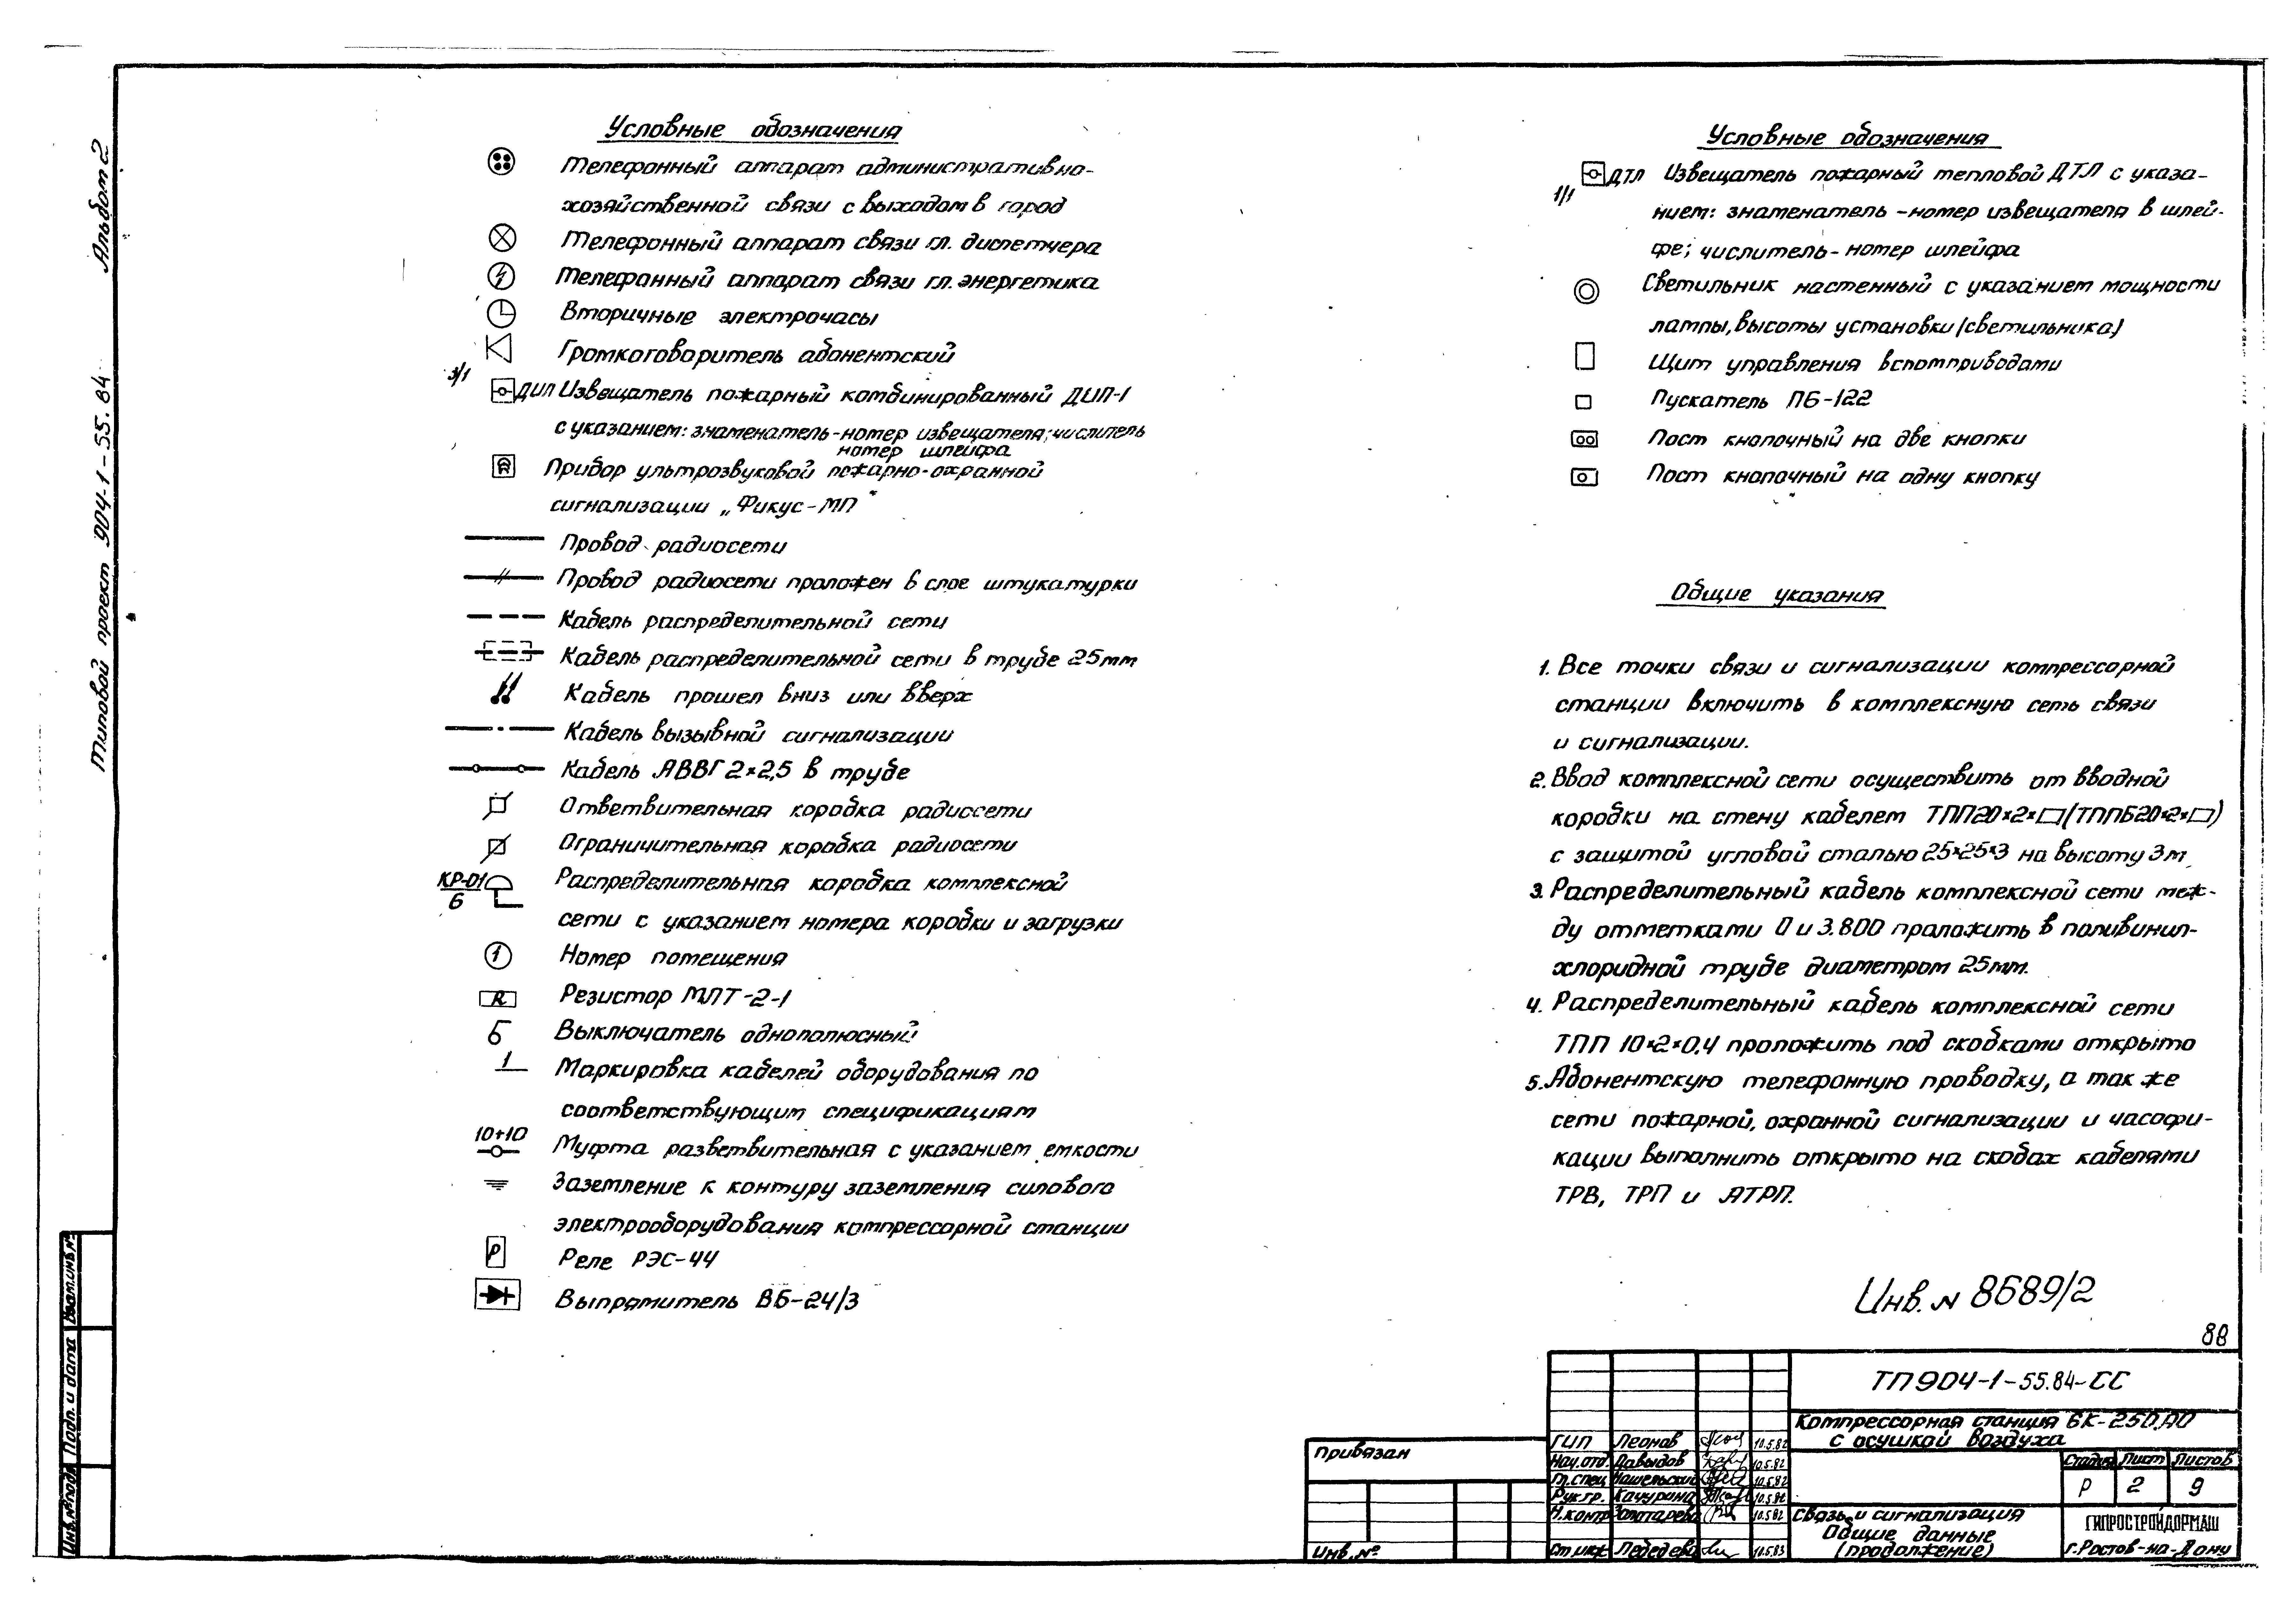 Альбом 2
Типовой проект 904-1-55.84
Условные обозначения
Телефонный аппарат административно-
хозяйственной связи с выходом в город
Телефонный аппарат связи гл. диспетчера
Телефонный аппарат связи гл. энергетика
Вторичные электрочасы
Громкоговоритель абонентский
3/1
ДИП Извещатель пожарный комбинированный ДИП-1
с указанием: знаменатель-номер извещателя; числитель
номер шлейфа
Прибор ультрозвуковой пожарно-охранной
сигнализации „Фикус-МП"
Провод радиосети
Провод радиосети проложен в слое штукатурки
Кабель распределительной сети
Кабель распределительной сети в трубе 25мм
Кабель прошел вниз или вверх
Кабель вызывной сигнализации
Кабель АВВГ 2×2,5 в трубе
Ответвительная коробка радиосети
Ограничительная коробка радиосети
КР-01
6
Распределительная коробка комплексной
сети с указанием номера коробки и загрузки
1 Номер помещения
R Резистор МЛТ-2-1
Выключатель однополюсный
1 Маркировка кабелей оборудования по
соответствующим спецификациям
10+10
Муфта разветвительная с указанием емкости
Заземление к контуру заземления силового
электрооборудования компрессорной станции
Р Реле РЭС-44
Выпрямитель ВБ-24/3
Условные обозначения
1/1
ДТЛ Извещатель пожарный тепловой ДТЛ с указа-
нием: знаменатель-номер извещателя в шлей-
фе; числитель-номер шлейфа
Светильник настенный с указанием мощности
лампы, высоты установки (светильника)
Щит управления вспомприводами
Пускатель ПБ-122
Пост кнопочный на две кнопки
Пост кнопочный на одну кнопку
Общие указания
1. Все точки связи и сигнализации компрессорной
станции включить в комплексную сеть связи
и сигнализации.
2. Ввод комплексной сети осуществить от вводной
коробки на стену кабелем ТПП20×2×□(ТППБ20×2×□)
с защитой угловой сталью 25×25×3 на высоту 3м
3. Распределительный кабель комплексной сети меж-
ду отметками 0 и 3.800 проложить в поливинил-
хлоридной трубе диаметром 25мм.
4. Распределительный кабель комплексной сети
ТПП 10×2×0,4 проложить под скобками открыто
5. Абонентскую телефонную проводку, а так же
сети пожарной, охранной сигнализации и часофи-
кации выполнить открыто на скобах кабелями
ТРВ, ТРП и АТРП.
Инв. N 8689/2
88
ТП 904-1-55.84-СС
Компрессорная станция 6К-250А0
с осушкой воздуха
Стадия Лист Листов
Р 2 9
Связь и сигнализация
Общие данные
(продолжение)
ГИПРОСТРОЙДОРМАШ
г. Ростов-на-Дону
ГИП Леонов 10.5.82
Нач.отд. Давыдов 10.5.82
Гл.спец 10.5.82
Рук.гр. Качурина
Н.контр Золотарева 10.5.82
Ст.инж Лебедева 10.5.83
Привязан
Инв.№
Взам.инв.№
Подп. и дата
Инв.№подл